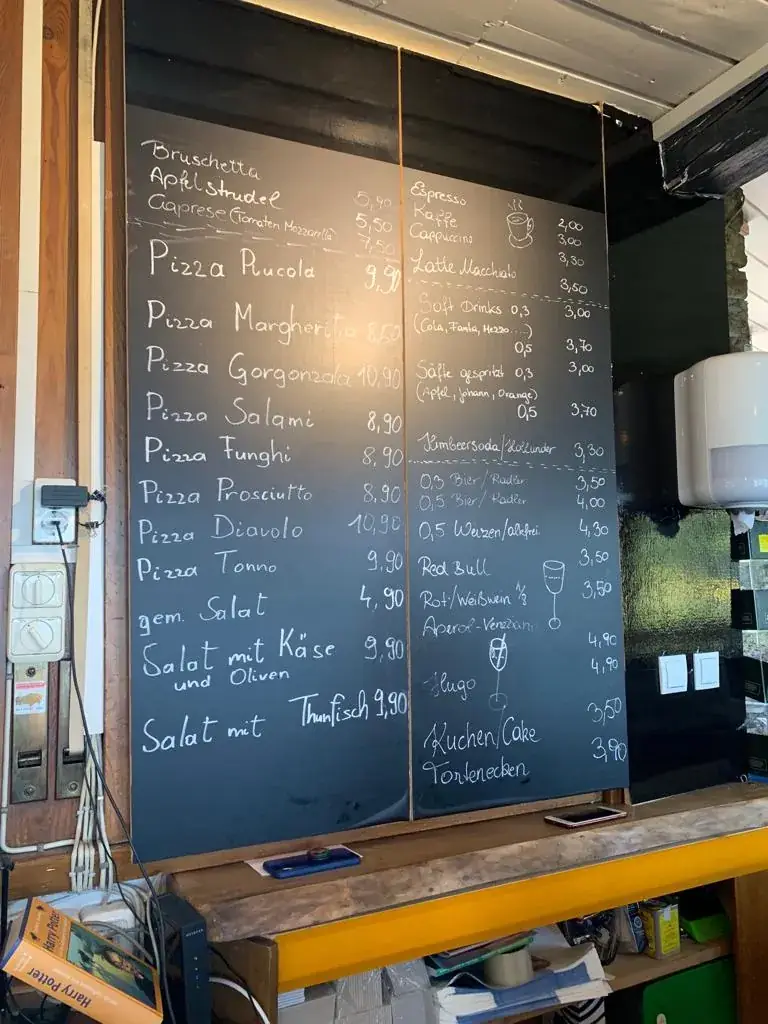 Bruschetta 5,90
Apfelstrudel 5,50
Caprese (Tomaten Mozzarella) 7,50
Pizza Rucola 9,90
Pizza Margherita 8,50
Pizza Gorgonzola 10,90
Pizza Salami 8,90
Pizza Funghi 8,90
Pizza Prosciutto 8,90
Pizza Diavolo 10,90
Pizza Tonno 9,90
gem. Salat 4,90
Salat mit Käse 9,90
und Oliven
Salat mit Thunfisch 9,90
Espresso 2,00
Kaffe 3,00
Cappuccino 3,30
Latte Macchiato 3,50
Soft Drinks 0,3 3,00
(Cola, Fanta, Mezzo....)
0,5 3,70
Säfte gespritzt 0,3 3,00
(Apfel, Johann, Orange)
0,5 3,70
Himbeersoda/Hollunder 3,30
0,3 Bier/Radler 3,50
0,5 Bier/Radler 4,00
0,5 Weizen/alkfrei 4,30
Red Bull 3,50
Rot/Weißwein 1/8 3,50
Aperol-Veneziano 4,90
Hugo 4,90
Kuchen/Cake 3,50
Tortenecken 3,90
Harry Potter
Harry Potter